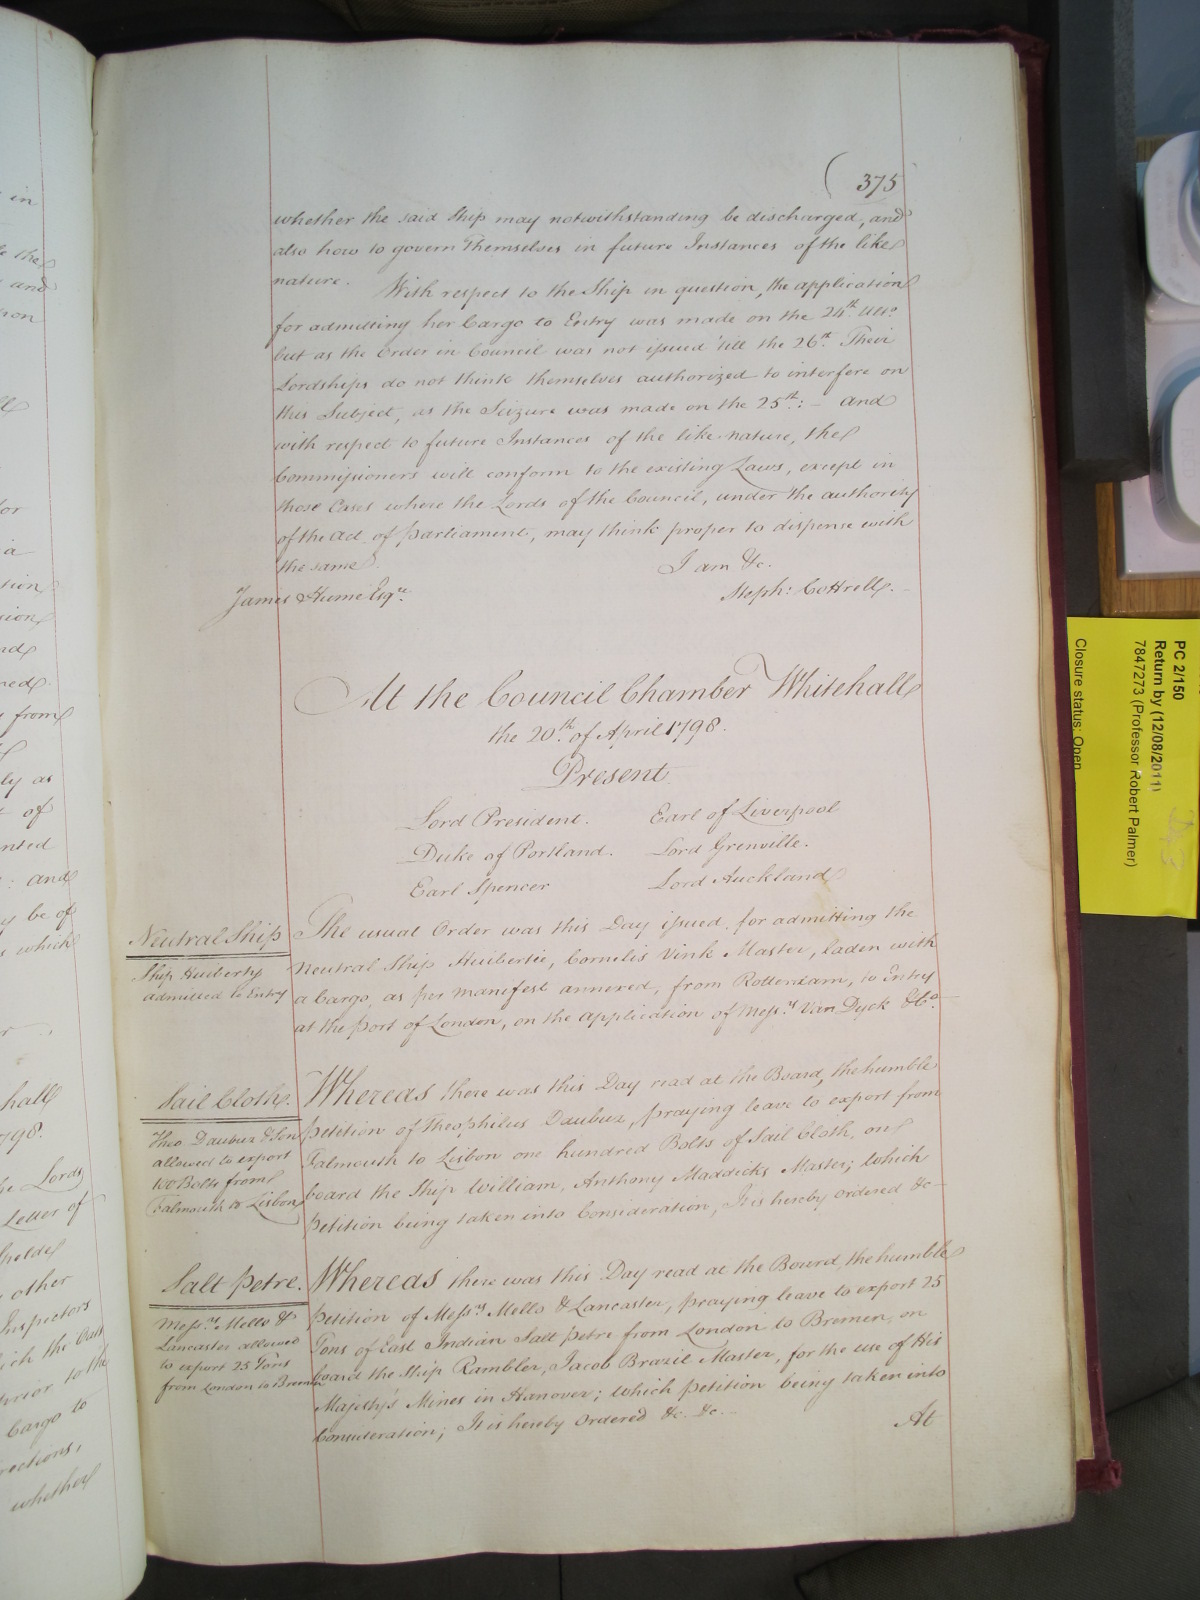 ( 375
whether the said Ship may notwithstanding be discharged, and
also how to govern Themselves in future Instances of the like
nature. With respect to the Ship in question, the application
for admitting her Cargo to Entry was made on the 24th. Ulto.
but as the Order in Council was not issued 'till the 26th. Their
Lordships do not think themselves authorized to interfere on
this Subject, as the Seizure was made on the 25th: — And
with respect to future Instances of the like nature, the
Commissioners will conform to the existing Laws, except in
those Cases where the Lords of the Council, under the authority
of the Act of Parliament, may think proper to dispense with
the same. I am &c.
James Hume Esqre. Steph: Cottrell.
At the Council Chamber Whitehall
the 20th. of April 1798.
Present
Lord President. Earl of Liverpool
Duke of Portland. Lord Grenville.
Earl Spencer Lord Auckland
Neutral Ship
Ship Huiberty
admitted to Entry
The usual Order was this Day issued for admitting the
Neutral Ship Huibertie, Cornelis Vink Master, laden with
a Cargo, as per Manifest annexed, from Rotterdam, to Entry
at the Port of London, on the Application of Messrs. Van Dyck & Co.
Sail Cloth.
Theo. Daubuz & Son
allowed to export
100 Bolts from
Falmouth to Lisbon
Whereas there was this Day read at the Board, the humble
Petition of Theophilus Daubuz, praying leave to export from
Falmouth to Lisbon one hundred Bolts of Sail Cloth, on
board the Ship William, Anthony Maddicks Master; Which
Petition being taken into Consideration, It is hereby ordered &c
Salt Petre.
Messrs. Mello &
Lancaster allowed
to export 25 Tons
from London to Bremen
Whereas there was this Day read at the Board, the humble
Petition of Messrs. Mello & Lancaster, praying leave to export 25
Tons of East Indian Salt Petre from London to Bremen, on
board the Ship Rambler, Jacob Brazil Master, for the use of His
Majesty's Mines in Hanover; Which Petition being taken into
Consideration; It is hereby Ordered &c. &c.
At
PC 2/150
Return by (12/08/2011)
7847273 (Professor Robert Palmer)
Closure status: Open